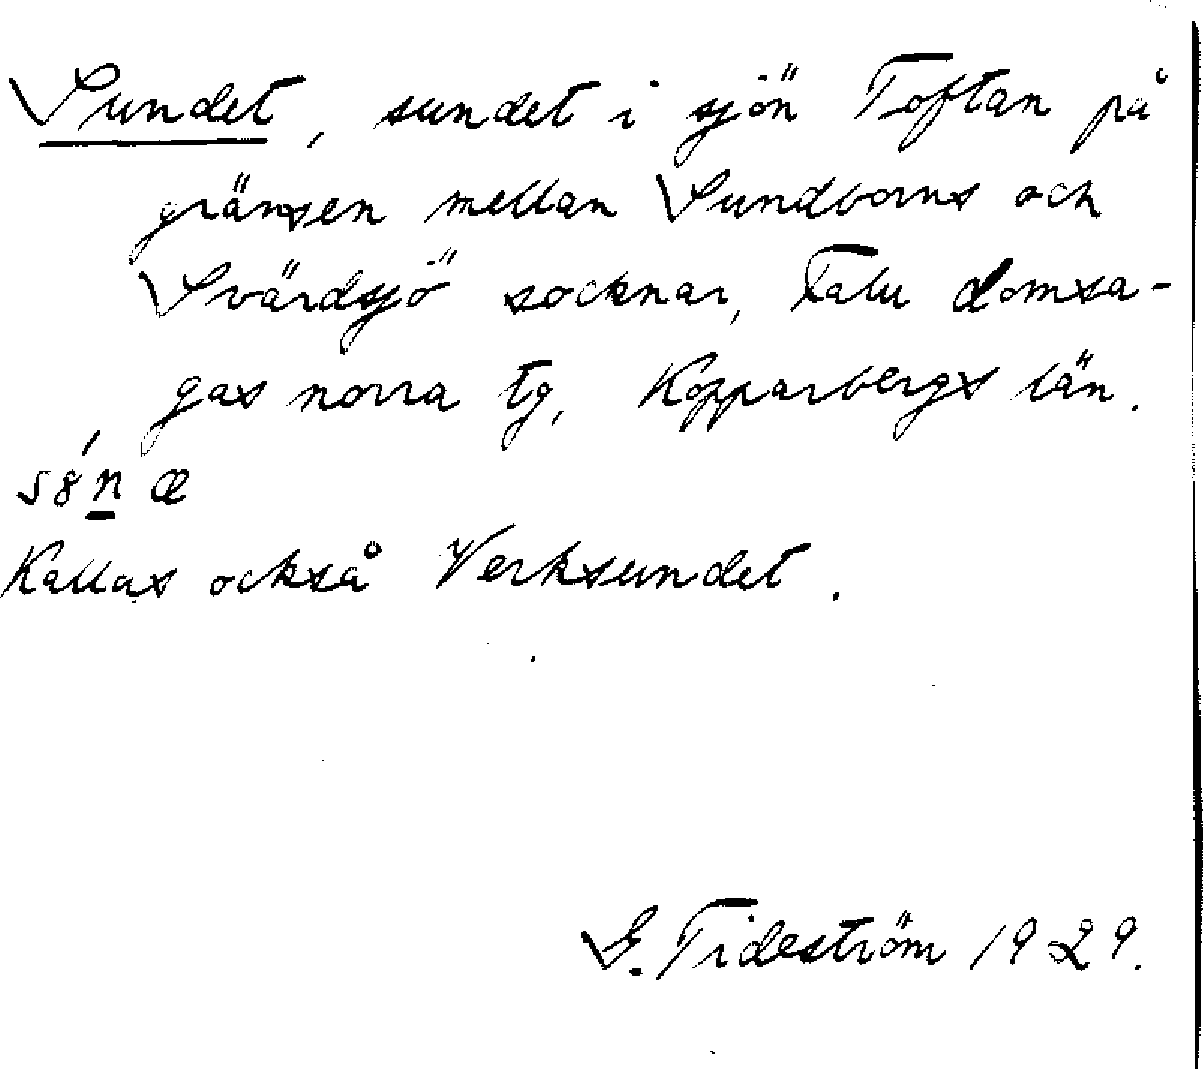 Sundet, sundet i sjön Toftan på
gränsen mellan Sundborns och
Svärdsjö socknar, Falu domsa-
gas norra tg, Kopparbergs län.
s8́n æ
Kallas också Verksundet.
G. Tideström 1929.